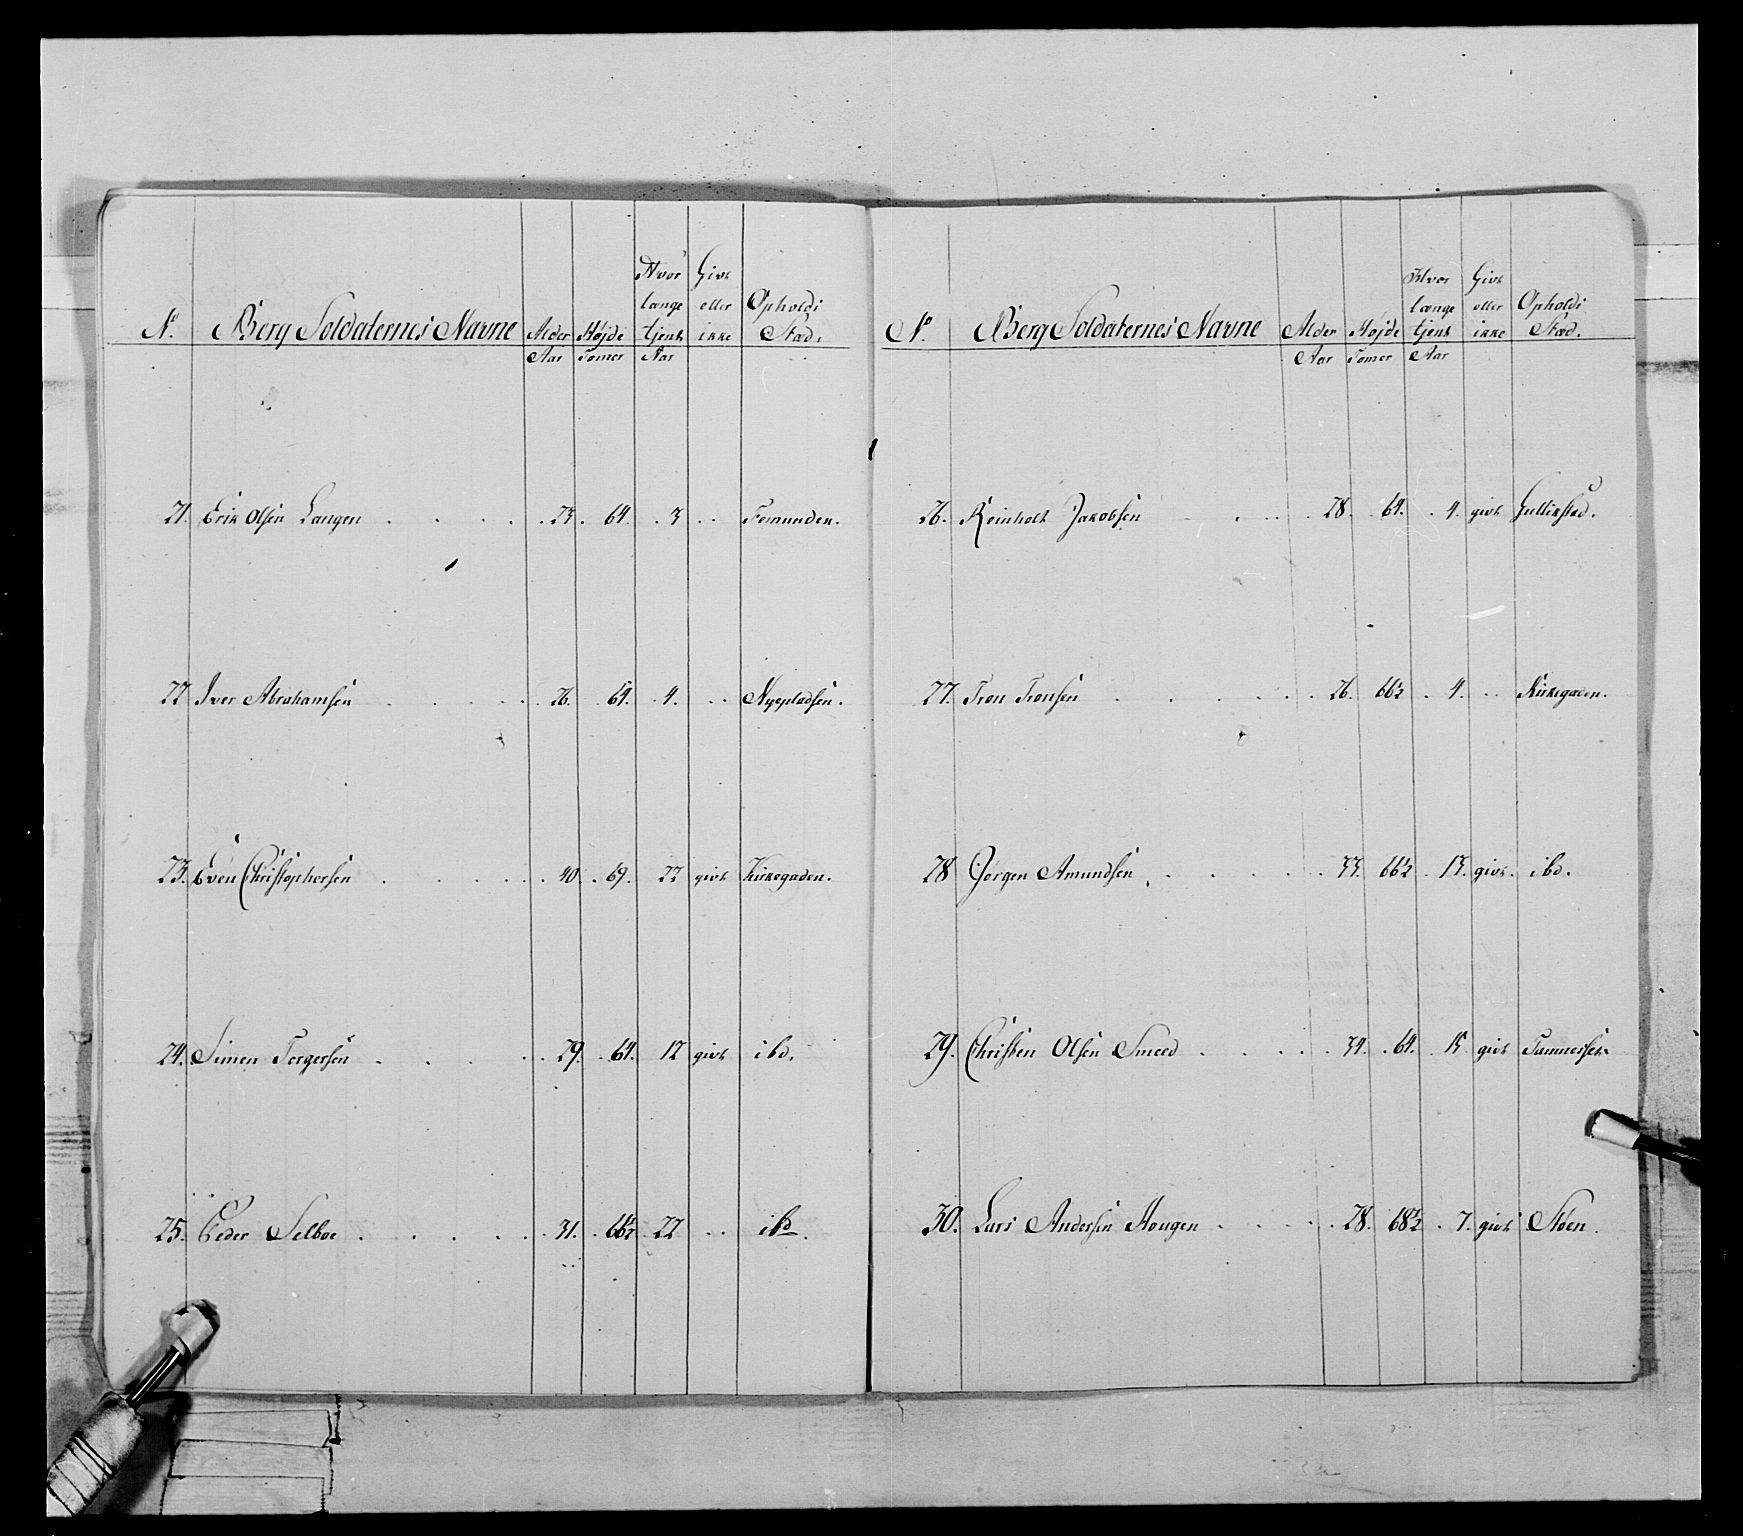 N.º Berg Soldaternes Navne Alder Højde Hvor længe tjent Givt eller ikke Opholds Stæd.
Aar Tomer Aar
21. Erik Olsen Langen . . . . . 23. 64. 3 . . Femunden.
22 Iver Abrahamsen . . . . 26. 64. 4. . . Nyepladsen.
23. Even Christophersen . . . . 40. 69. 22 givt Kirkegaden.
24. Simen Torgersen . . . . 29. 64. 12 givt ibd.
25. Peder Selboe . . . . . 31. 66½ 22 . . ibd.
N.º Berg Soldaternes Navne Alder Højde Hvor længe tjent Givt eller ikke Opholds Stæd.
Aar Tomer Aar
26. Reinholt Jakobsen . . . . 28. 64. 4. givt Gullikstad.
27. Tron Tronsen . . . . . 26. 66½ 4. . . Kirkegaden.
28 Jørgen Amundsen . . . . . 33. 66½ 13. givt. ibd.
29. Christen Olsen Smeed . . . . 34. 64. 15 givt
30. Lars Andersen Hougen . . . . 28. 68½ 7. givt Støen.